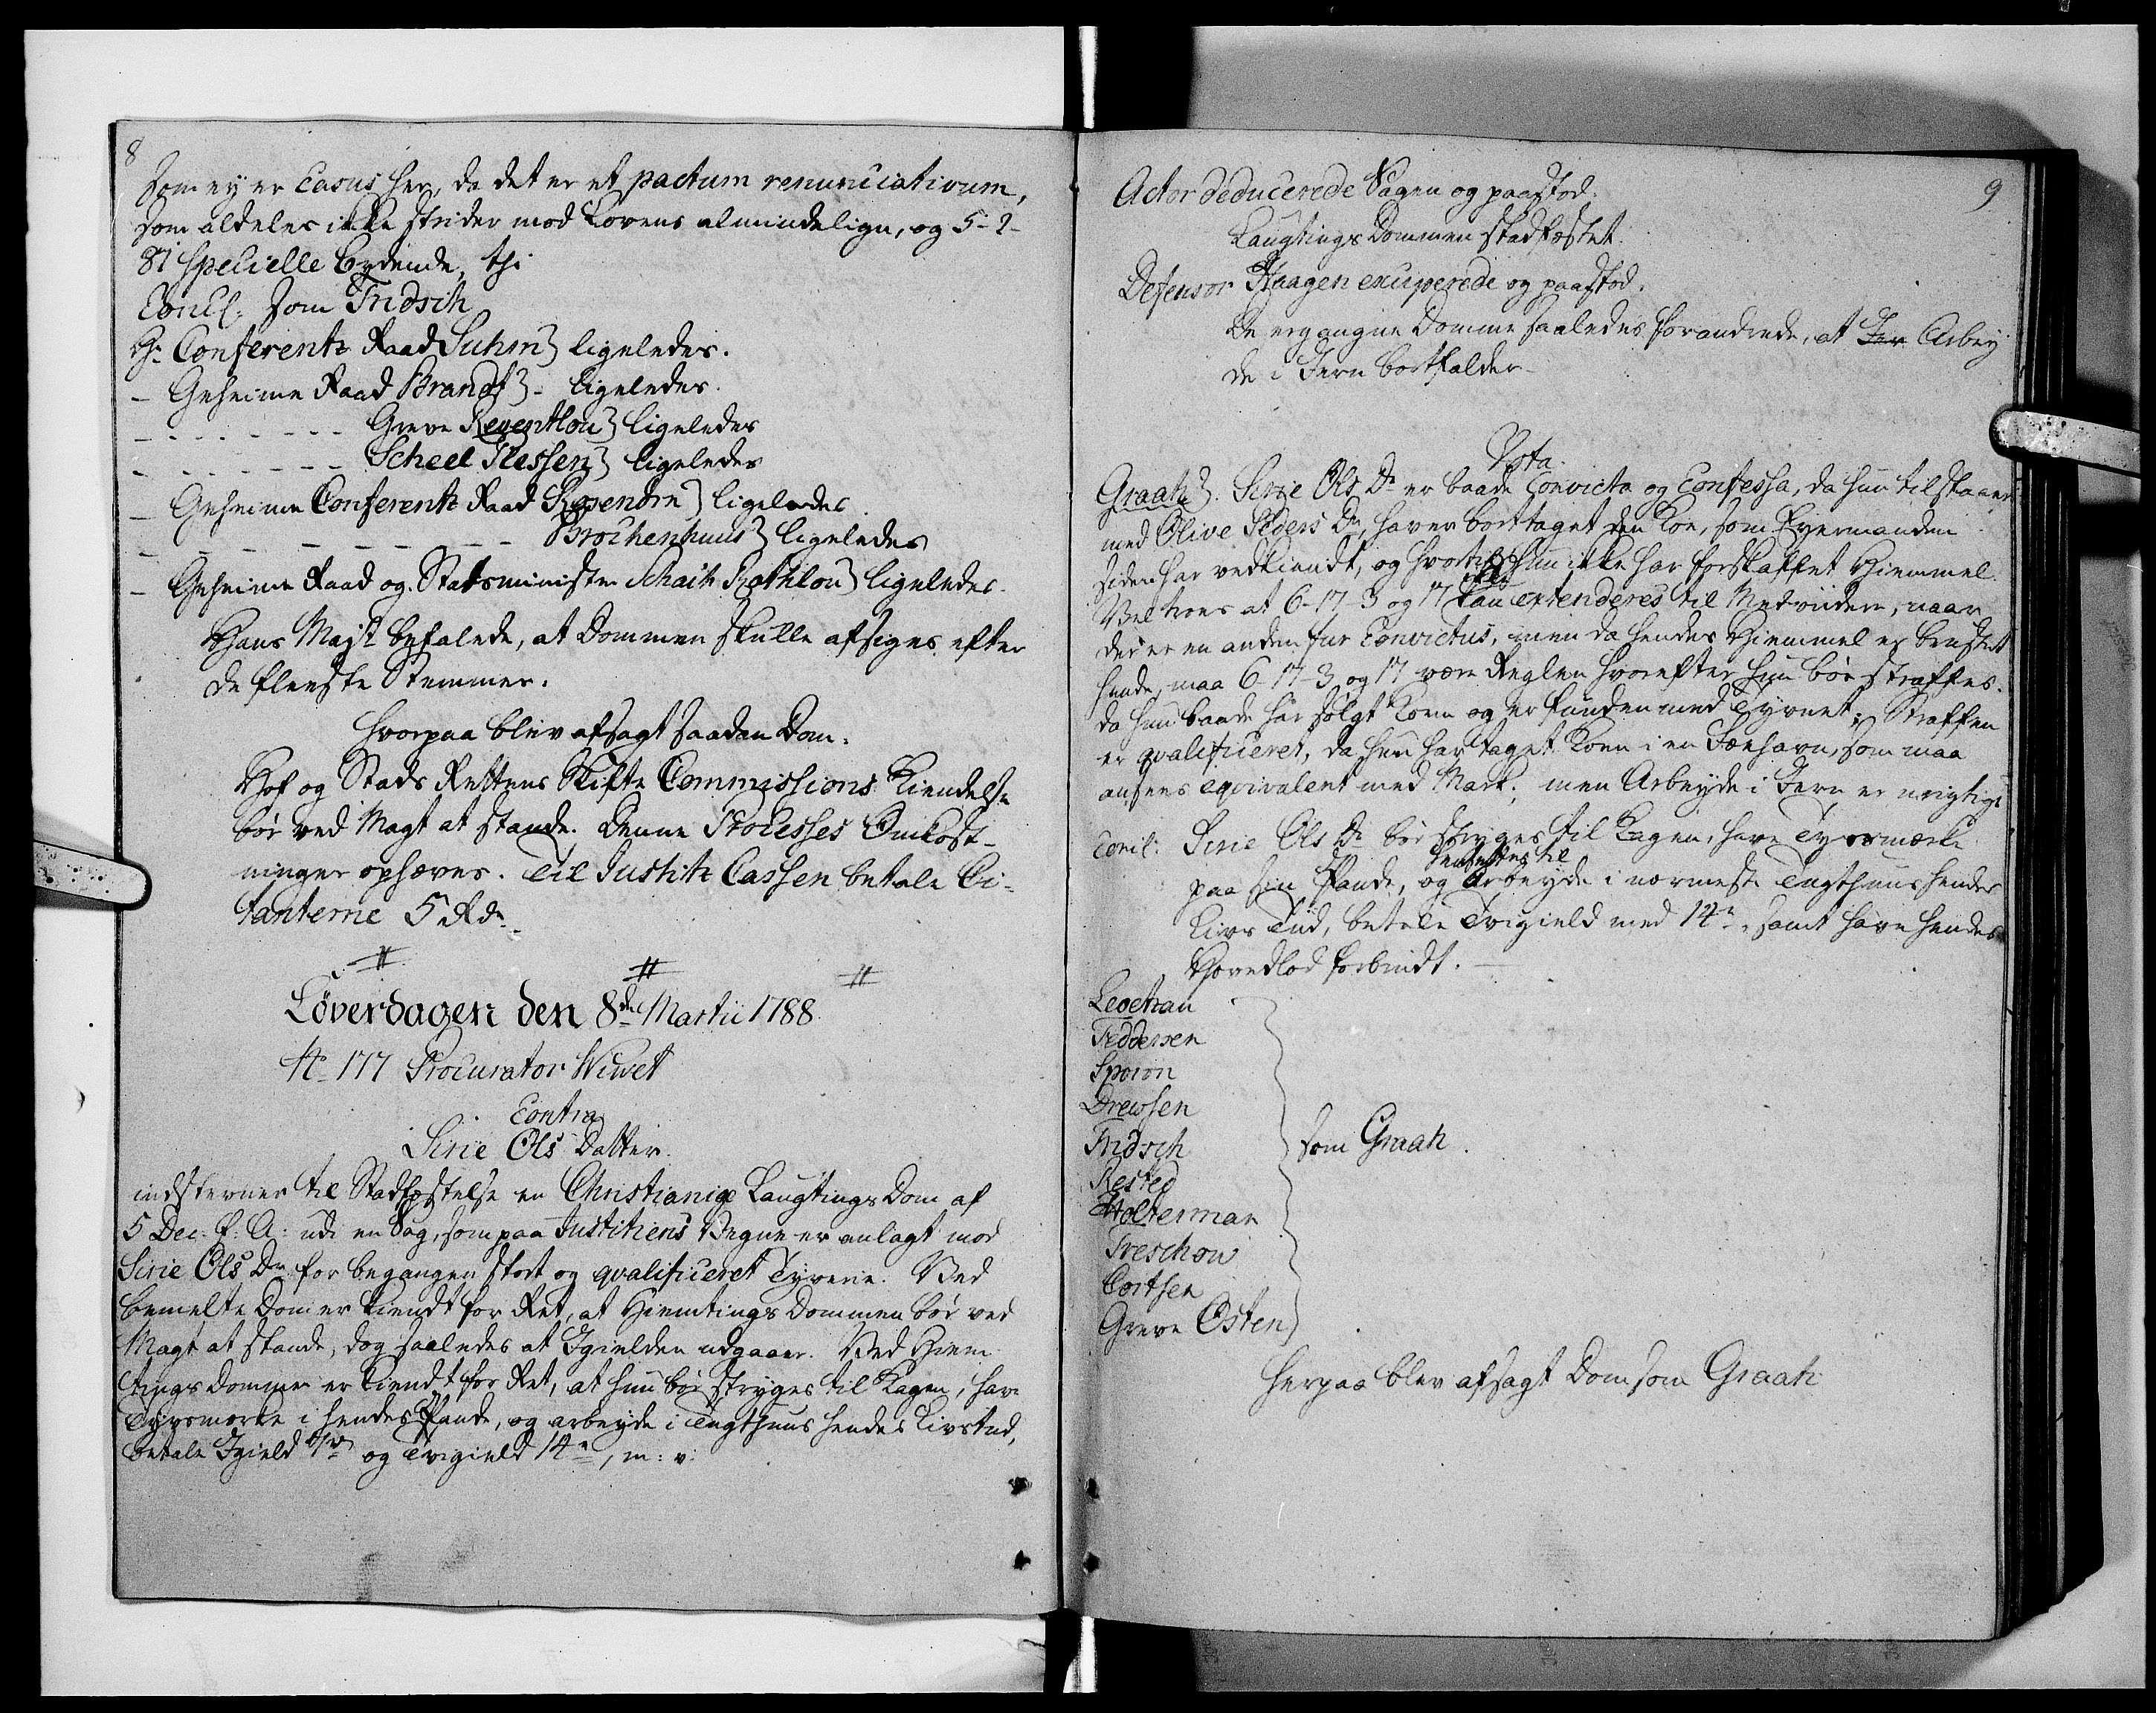 8
som ey er Casus her, da det er et pactum renunciativum,
som aldeles ikke strider mod Lovens almindelige, og 5-2-
81 specielle bydende, thi
Concl: som Fridsch
Hr Conferentz Raad Suhm} ligeledes.
- Geheime Raad Brandt} - ligeledes.
- - - - - - - Greve Reventlou} ligeledes
- - - - - - - Scheel Plessen} ligeledes
- Geheime Conferentz Raad Rosencrone} ligeledes.
- - - - - - - - - Brockenhuus} ligeledes
- Geheime Raad og Statsminister Schack Rathlou} ligeledes.
Hans Majt befalede, at Dommen skulle afsiges efter
de fleeste Stemmer.
Hvorpaa blev afsagt saadan Dom.
Hof og Stads Rettens Skifte Commissions Kiendelse
bør ved Magt at stande. Denne Processes Omkost-
ninger ophæves. Til Justitz Cassen betale Ci-
tanterne 5 Rdr.
Løverdagen den 8de Martii 1788
No 177 Procurator Wivet
Contra
Sirie Ols Datter.
indstevner til Stadfæstelse en Christianiæ Laugtings Dom af
5 Dec. f. A: udi en Sag, som paa Justitiens Vegne er anlagt mod
Sirie Ols Dr for begangen stort og qvalificeret Tyverie. Ved
bemelte Dom er kiendt for Ret, at Hiemtings Dommen bør ved
Magt at stande, dog saaledes at Igielden udgaaer. Ved Hiem-
tings Dommen er kiendt for Ret, at hun bør stryges til Kagen, have
Tyvsmerke i hendes Pande, og arbeyde i Tugthuus hendes Livstid,
betale Igield og Tvigield 14 , m: v:
9
Actor deducerede Sagen og paastod.
Laugtings Dommen stadfæstet.
Defensor Haagen exciperede og paastod.
De ergangne Domme saaledes forandrede, at Jer Arbey-
de i Jern bortfalder
Vota.
Graah}. Sirie Ols Dr er baade Convicta og Confessa, da hun tilstaaer
med Olive Peders Dr, haver borttaget den Koe, som Eyermanden
siden har vedkiendt, og hvortil hun ikke har forskaffet Hiemmel.
Vel troes at 6-17-3 og 17 kan extenderes til Medvidere, naar
der er en anden fur Convictus, men da hendes Hiemmel er brustet
hende, maa 6-17-3 og 17 være Reglen hvorefter hun bør straffes.
da hun baade har solgt Koen og er funden med Tyvnet. Straffen
er qvalificeret, da hun har taget Koen i en Fæehavn, som maa
ansees eqvivalent med Mark; men Arbeyde i Jern er urigtigt
concl: Sirie Ols Dr bør stryges til Kagen, have Tyvsmerke
paa sin Pande, og hensettes til Arbeyde i nærmeste Tugthuus hendes
Livs Tiid, betale Tvigield med 14 , samt have hendes
Hovedlod forbrudt. -
Levetzau
Feddersen
Sporon
Drewsen
Fridsch
Kested
Wolterman
Treschow
Cortsen
Greve Osten}
som Graah.
Herpaa blev afsagt Dom som Graah